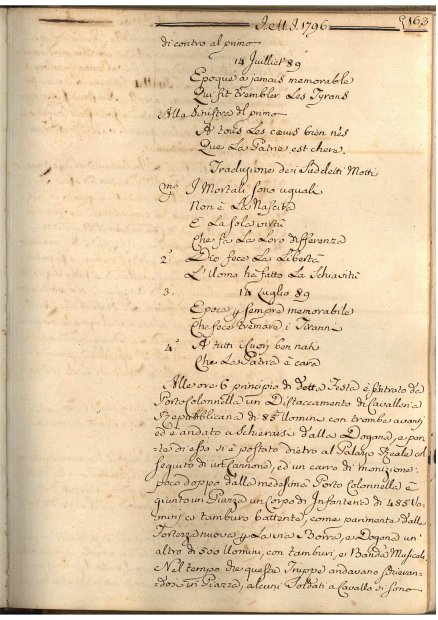 J.M.J. 1796
163
di contro al primo
14 Juillet 89
Epoque a jamais memorable
Qui fit trembler Les Tyrans
Alla Sinistra del primo
A tous Les cœurs bien nés
Que La Patrie est chere.
Traduzione dei Suddetti Motti
J Mortali sono uguali
Non è La Nascita
E La sola virtù
Che fa La Loro differenza
2° Dio fece La Libertà
L'Uomo hà fatto La Schiavitù
3. 14 Luglio 89
Epoca p sempre memorabile
Che fece tremare i Tiranni
4° A tutti i Cuori ben nati
Che La Patria è cara
Alle ore 6 principio di detta Festa è entrato da
Porto Colonnella un Distaccamento di Cavalleria
Repubblicana di 85 Uomini con trombe avanti
ed è andato a Schierarsi dalla Dogana, e por-
te di esso si è postato dietro al Palazzo Reale col
seguito di un Cannone, ed un carro di monizione:
poco doppo dalla medesima Porto Colonnella è
giunto in Piazza un Corpo di Infanteria di 485 Uo-
mini a tamburo battente, come parimente dalla
Fortezza nuova p La via Borra, e Dogana un
altro di 500 Uomini, con tamburi, e Banda Musicale
Nel tempo che queste Truppe andavano schieran-
dosi in Piazza, alcuni Soldati a Cavallo si sono